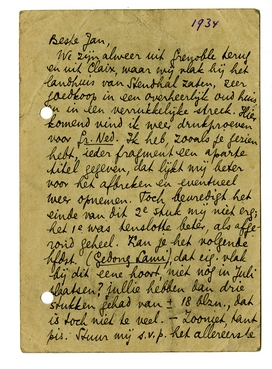 1934
Beste Jan,
We zijn alweer uit Grenoble terug
en uit Claix, waar wij vlak bij het
landhuis van Stendhal zaten, zeer
goedkoop in een overheerlijk oud huis
en in een verrukkelijke streek. Hier
komend vind ik weer drukproeven
voor Gr. Ned. Ik heb, zooals je gezien
hebt, ieder fragment een aparte
titel gegeven, dat lijkt mij beter
voor het afbreken en eventueel
weer opnemen. Toch bevredigt het
einde van dit 2e stuk mij niet erg;
het 1e was tenslotte beter, als afge-
rond geheel. Kan je het volgende
hfdst. (Gedong Lami), dat eig. vlak
bij dit eene hoort, niet nog in Juli
plaatsen? Jullie hebben dan drie
stukken gehad van ± 18 blzn, dat
is toch niet te veel. – Zoo niet, tant
pis. Stuur mij s.v.p. het allereerste